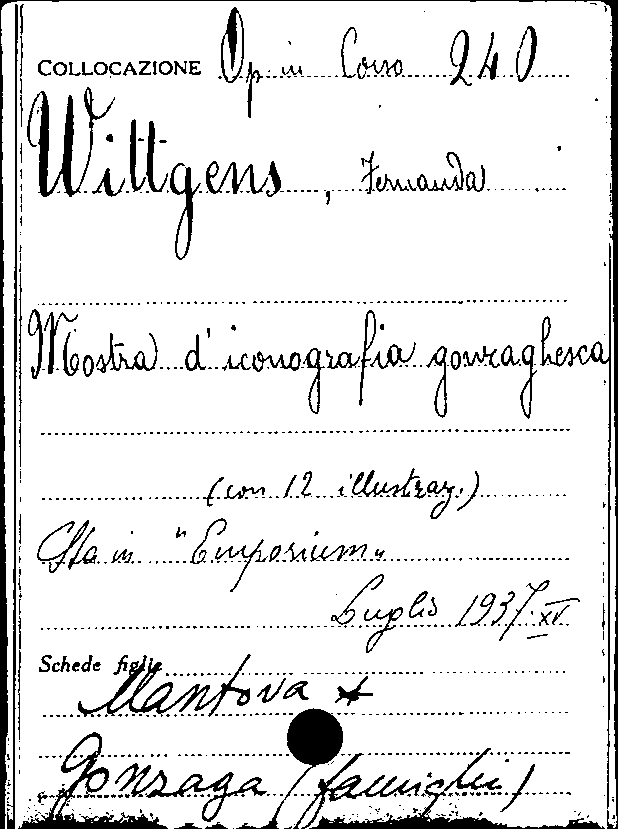 COLLOCAZIONE Op in Corso 240
Wittgens, Fernanda
Mostra d'iconografia gonzaghesca
(con 12 illustraz.)
Sta in "Emporium"
Luglio 1937. XV
Schede figlie
Mantova +
Gonzaga (famiglia)